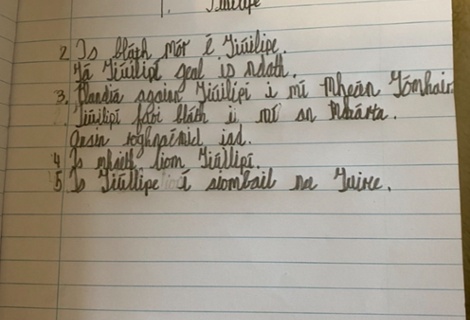 1. Tiúilipe
2. Is bláth mór é Tiúilipe.
Tá Tiúilipí geal is ndath.
3. Plandia againn Tiúilipí i mí Mheán Fómhair
Tiúilipí faoi bláth i mí an Mhárta.
roghnaímid iad.
4 Is mhaith liom Tiúilipí.
5. Is Tiúilipe í siombail na Tuirce.